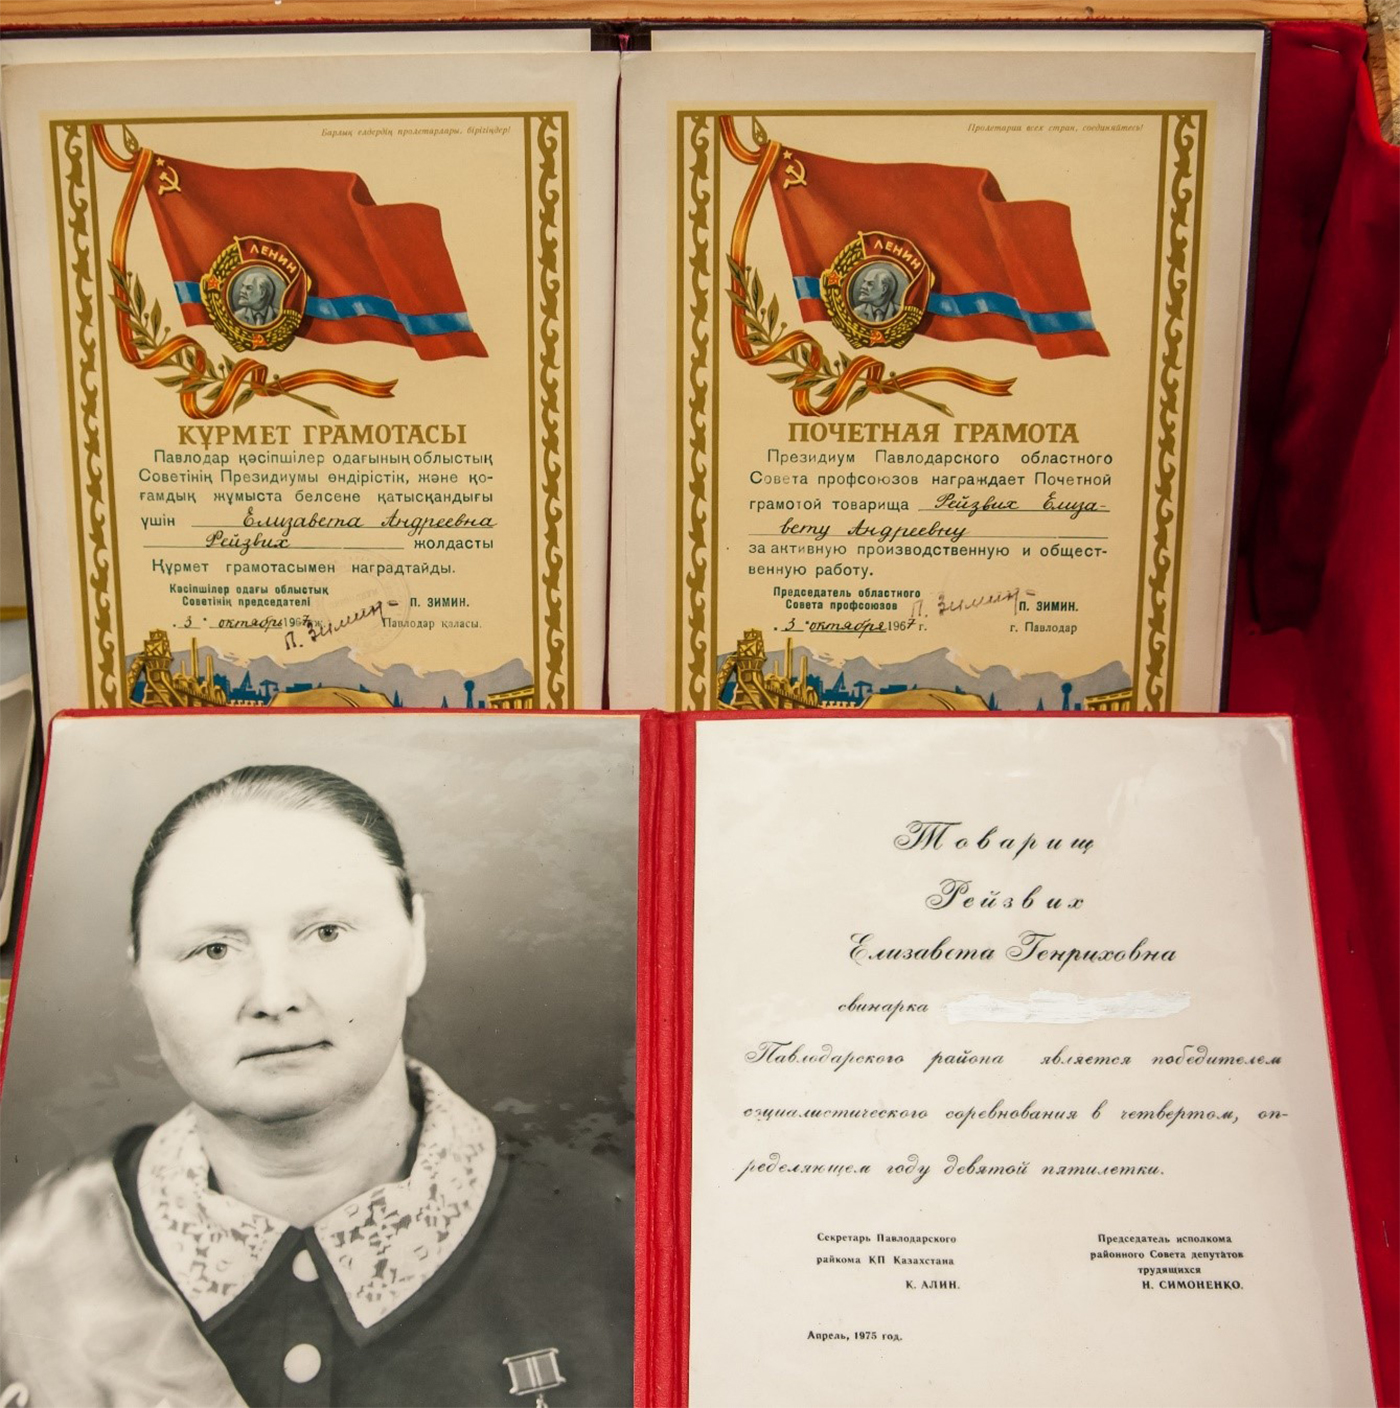 Барлық елдердің пролетарлары, бірігіңдер!
ЛЕНИН
ҚҰРМЕТ ГРАМОТАСЫ
Павлодар қәсіпшілер одағының облыстық
Советінің Президиумы өндірістік, және қо-
ғамдық жұмыста белсене қатысқандығы
үшін Елизавета Андреевна
Рейзвих жолдасты
Құрмет грамотасымен наградтайды.
Кәсіпшілер одағы облыстық
Советінің председателі П. Зимин П. ЗИМИН.
„3" октября 1967 ж. Павлодар қаласы.
Пролетарии всех стран, соединяйтесь!
ЛЕНИН
ПОЧЕТНАЯ ГРАМОТА
Президиум Павлодарского областного
Совета профсоюзов награждает Почетной
грамотой товарища Рейзвих Елиза-
вету Андреевну
за активную производственную и общест-
венную работу.
Председатель областного
Совета профсоюзов П. Зимин П. ЗИМИН.
„3" октября 1967 г. г. Павлодар
Товарищ
Рейзвих
Елизавета Генриховна
свинарка
Павлодарского района является победителем
социалистического соревнования в четвертом, оп-
ределяющем году девятой пятилетки.
Секретарь Павлодарского
райкома КП Казахстана
К. АЛИН.
Председатель исполкома
районного Совета депутатов
трудящихся
Н. СИМОНЕНКО.
Апрель, 1975 год.